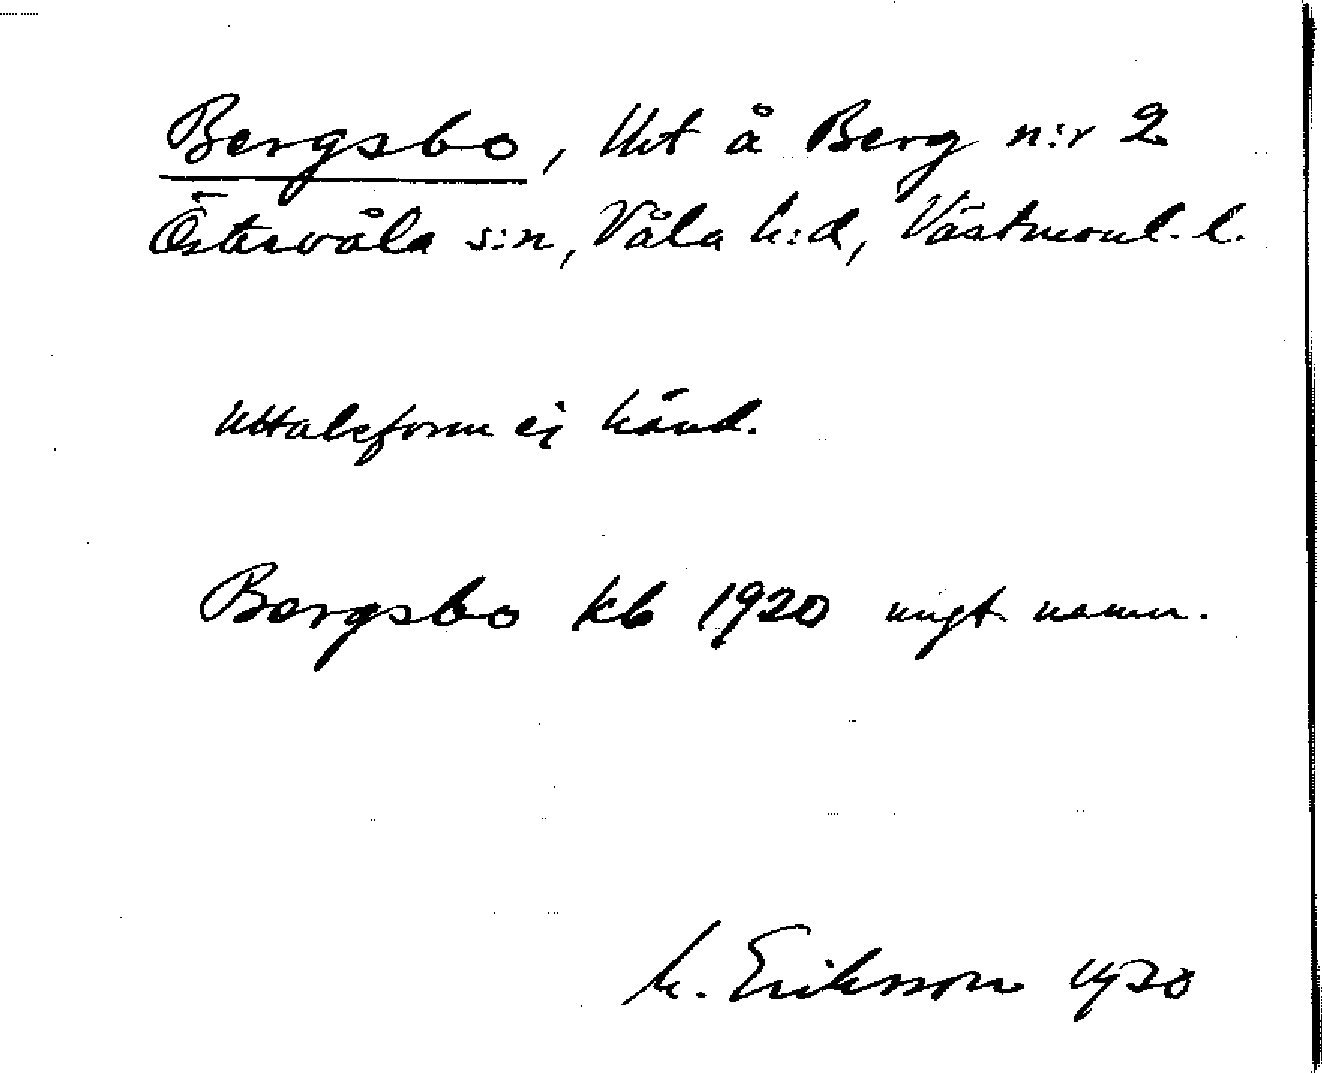 Bergsbo, lht å Berg n:r 2
Östervåla s:n, Våla h:d, Västmanl. l.
Uttalsform ej känd.
Bergsbo kb 1920 ungt namn.
M. Eriksson 1930